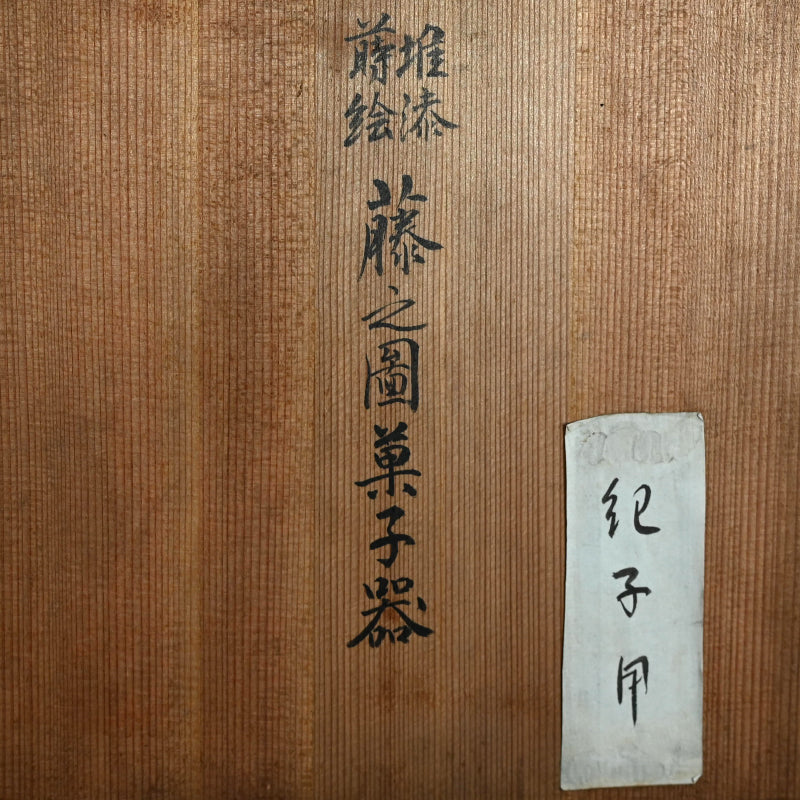 堆漆
蒔絵
藤之圖菓子器
紀子用